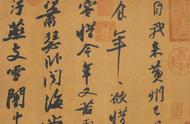 自我來黃州已
食年〻欲惜
容惜今年又苦雨
蕭瑟卧聞海棠
燕支雪闇中